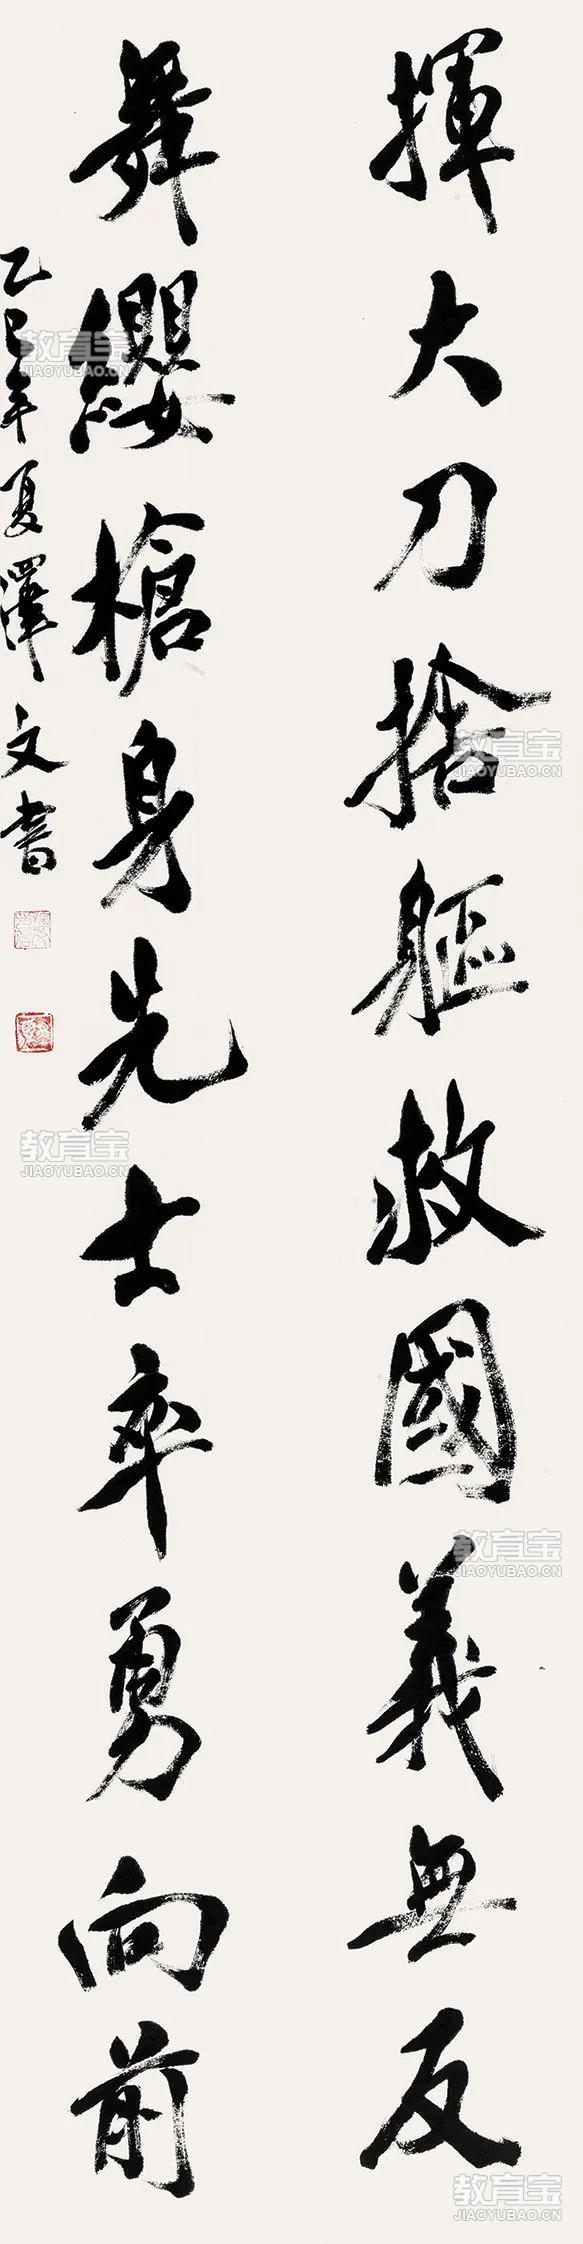 揮大刀捨軀救國義無反
舞纓槍身先士卒勇向前
乙巳年夏澤文書
教育宝
JIAOYUBAO.CN
教育宝
JIAOYUBAO.CN
教育宝
JIAOYUBAO.CN
教育宝
JIAOYUBAO.CN
教育宝
JIAOYUBAO.CN